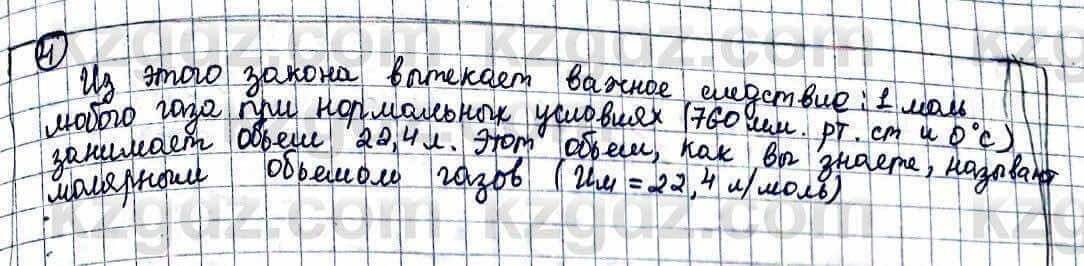 4
Из этого закона вытекает важное следствие: 1 моль
любого газа при нормальных условиях (760 мм. рт. ст и 0°С)
занимает объем 22,4 л. Этот объем, как вы знаете, называют
молярным объемом газов (Vм = 22,4 л/моль)
kzgdz.com